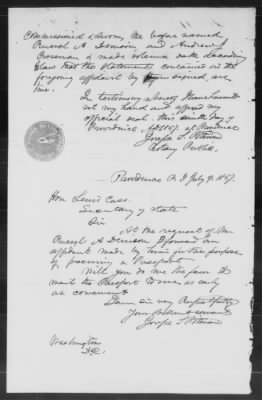 Commissioned & sworn, the before named
Russel A Denison, and Andrew J
Crossman & made solemn oath declaring
that the statements contained in the
foregoing affidavit by them signed, are
true.
In testimony whereof I have hereunto
set my hand and affixed my
official seal, this ninth day of
Providence
Joseph S. Pitman
Notary Public.
Providence R I July 9, 1857.
Hon Lewis Cass.
Secretary of State
Sir
At the request of Mr
Russel A Denison I forward an
affidavit made by him for the purpose
of procuring a Passport.
Will you do me the favor to
mail the Passport to me as early
as convenient
I am sir very Respectfully
Your obedient servant
Joseph S. Pitman
Washington
D.C.